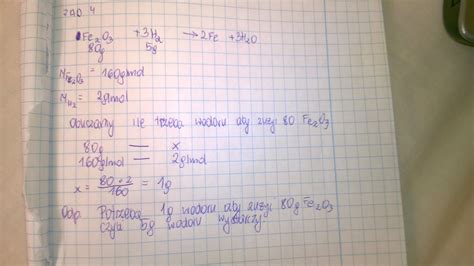 ZAD. 4
Fe2O3 + 3H2 → 2Fe + 3H2O
80g 5g
MFe2O3 = 160g/mol
MH2 = 2g/mol
Obliczamy ile trzeba wodoru aby zużyć 80 Fe2O3
80g — x
160g/mol — 2g/mol
x = 80·2/160 = 1g
Odp. Potrzeba 1g wodoru aby zużyć 80g Fe2O3
czyli 5g wodoru wystarczy.